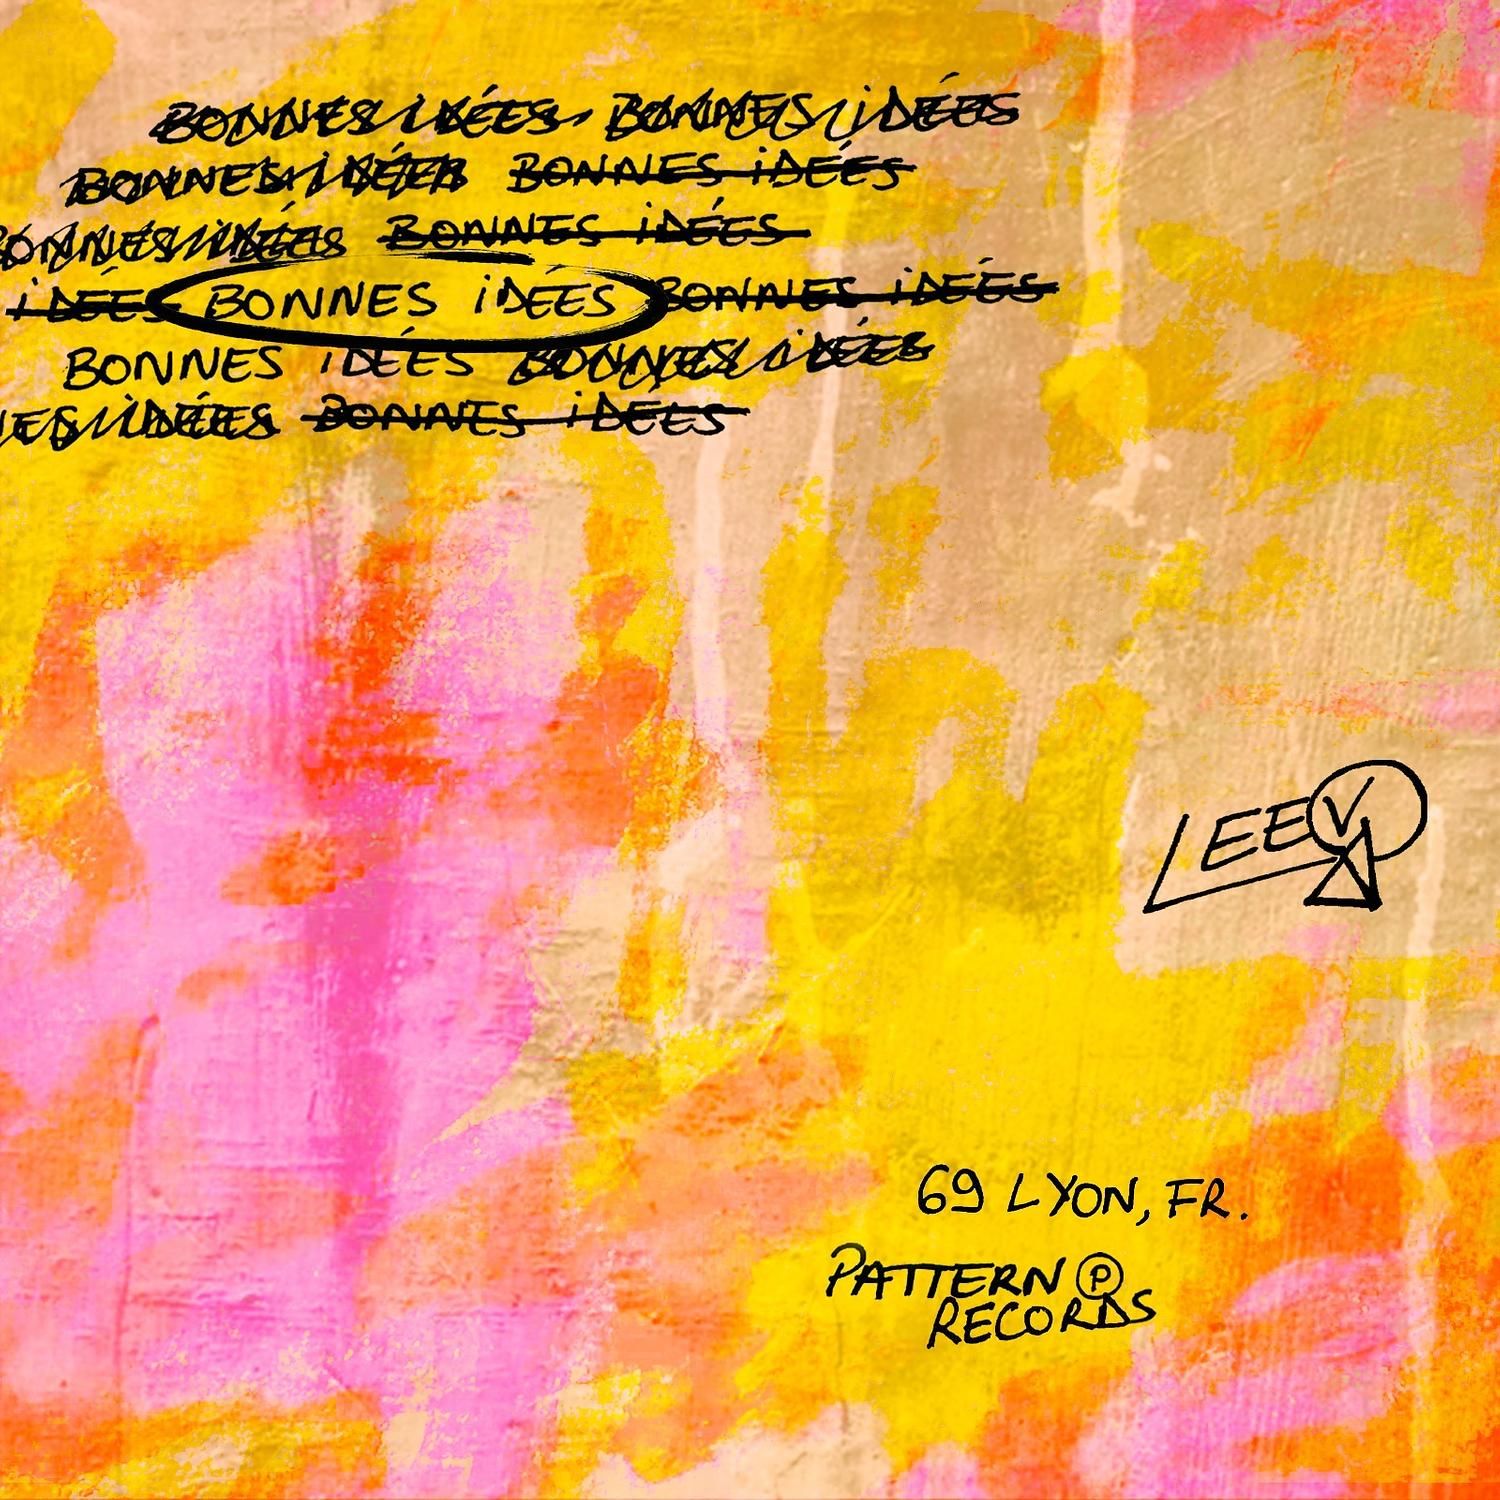 BONNES iDÉES BONNES iDÉES
BONNES iDÉES BONNES iDÉES
BONNES iDÉES BONNES iDÉES
iDÉES BONNES iDÉES BONNES iDÉES
BONNES iDÉES BONNES iDÉES
NES iDÉES BONNES iDÉES
LEEV
69 LYON, FR.
PATTERN Ⓟ
RECORDS